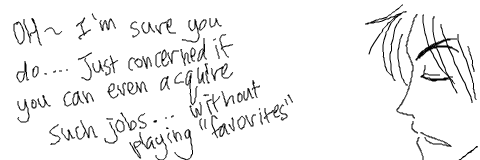 OH~ I'm sure you
do.... Just concerned if
you can even acquire
such jobs... without
playing "favorites"